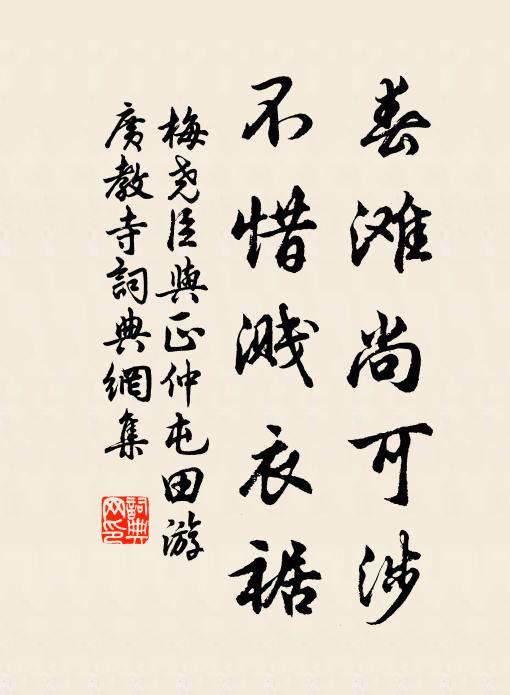 春滩尚可涉
不惜溅衣裾
梅尧臣與正仲屯田游
廣教寺詞典網集
詞典网印